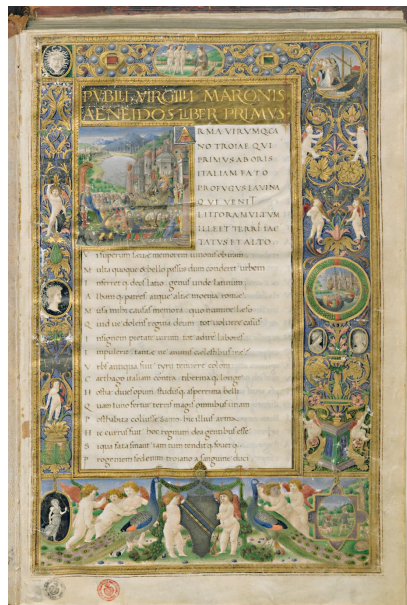 PVBILII VIRGILII MARONIS
AENEIDOS LIBER PRIMVS
ARMA VIRVMQ CA
NO TROIAE QVI
PRIMVS AB ORIS
ITALIAM FATO
PROFVGVS LAVINA
QVE VENIT
LITTORA MVLTVM
ILLE ET TERRIS IAC
TATVS ET ALTO
memorem iunonis ob iram
Multa quoque & bello passus dum conderet urbem
Inferret q deos latio genus unde latinum
Albani q patres atque altae moenia romae
Musa mihi causas memora quo numine laeso
Quid ue dolens regina deum tot uoluere casus
Insignem pietate uirum tot adire labores
Impulerit tantae ne animis caelestibus irae
Vrbs antiqua fuit tyrii tenuere coloni
Carthago italiam contra tiberina q longe
Hostia diues opum studiis q asperrima belli
Quam iuno fertur terris magis omnibus unam
Posthabita coluisse samo hic illius arma
Hic currus fuit hoc regnum dea gentibus esse
Si qua fata sinant iam tum tendit q fouet q
Progeniem sed enim troiano a sanguine duci